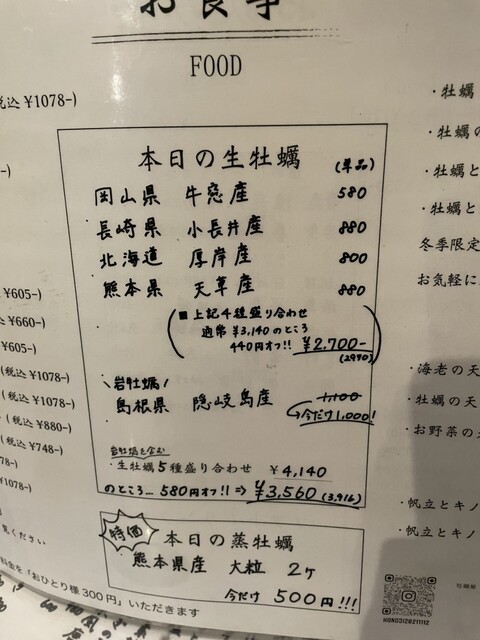 お食事
FOOD
税込 ¥1078-)
¥605-)
¥660-)
¥605-)
(税込 ¥1078-)
(税込 ¥1078-)
(税込 ¥880-)
(税込 ¥748-)
78-)
¥1078-)
覧ください
料金を「おひとり様300円」いただきます
本日の生牡蠣 (単品)
岡山県 牛窓産 580
長崎県 小長井産 880
北海道 厚岸産 800
熊本県 天草産 880
■上記4種盛り合わせ
通常 ¥3,140のところ
440円オフ!! ¥2,700-
(2970)
\岩牡蠣/
島根県 隠岐島産 1,100
今だけ1,000!
岩牡蠣を含む
・生牡蠣5種盛り合わせ ¥4,140
のところ... 580円オフ!! ⇒ ¥3,560 (3,916)
特価 本日の蒸牡蠣
熊本県産 大粒 2ヶ
今だけ 500円!!!
・牡蠣
・牡蠣の
・牡蠣と
・牡蠣と
冬季限定
お気軽に
・海老の天
・牡蠣の天
・お野菜の
・帆立とキノ
・帆立とキノ